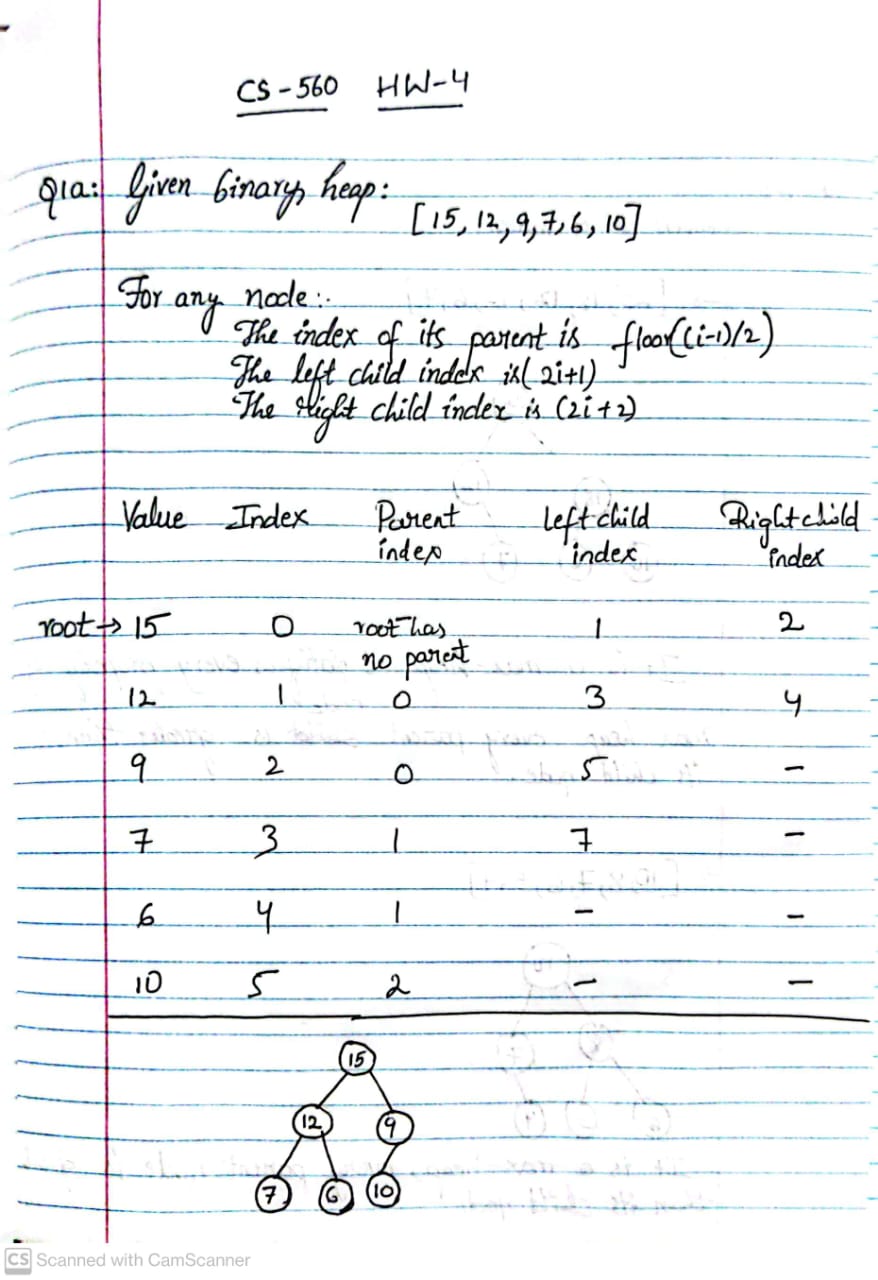 CS-560 HW-4
Q1a: Given binary heap:
[15, 12, 9, 7, 6, 10]
For any node:.
The index of its parent is floor((i-1)/2)
The left child index is( 2i+1)
The right child index is (2i+2)
Value Index Parent index Left child index Right child index
root → 15 0 root has no parent 1 2
12 1 0 3 4
9 2 0 5 -
7 3 1 7 -
6 4 1 - -
10 5 2 - -
15
12 9
7 6 10
CS Scanned with CamScanner